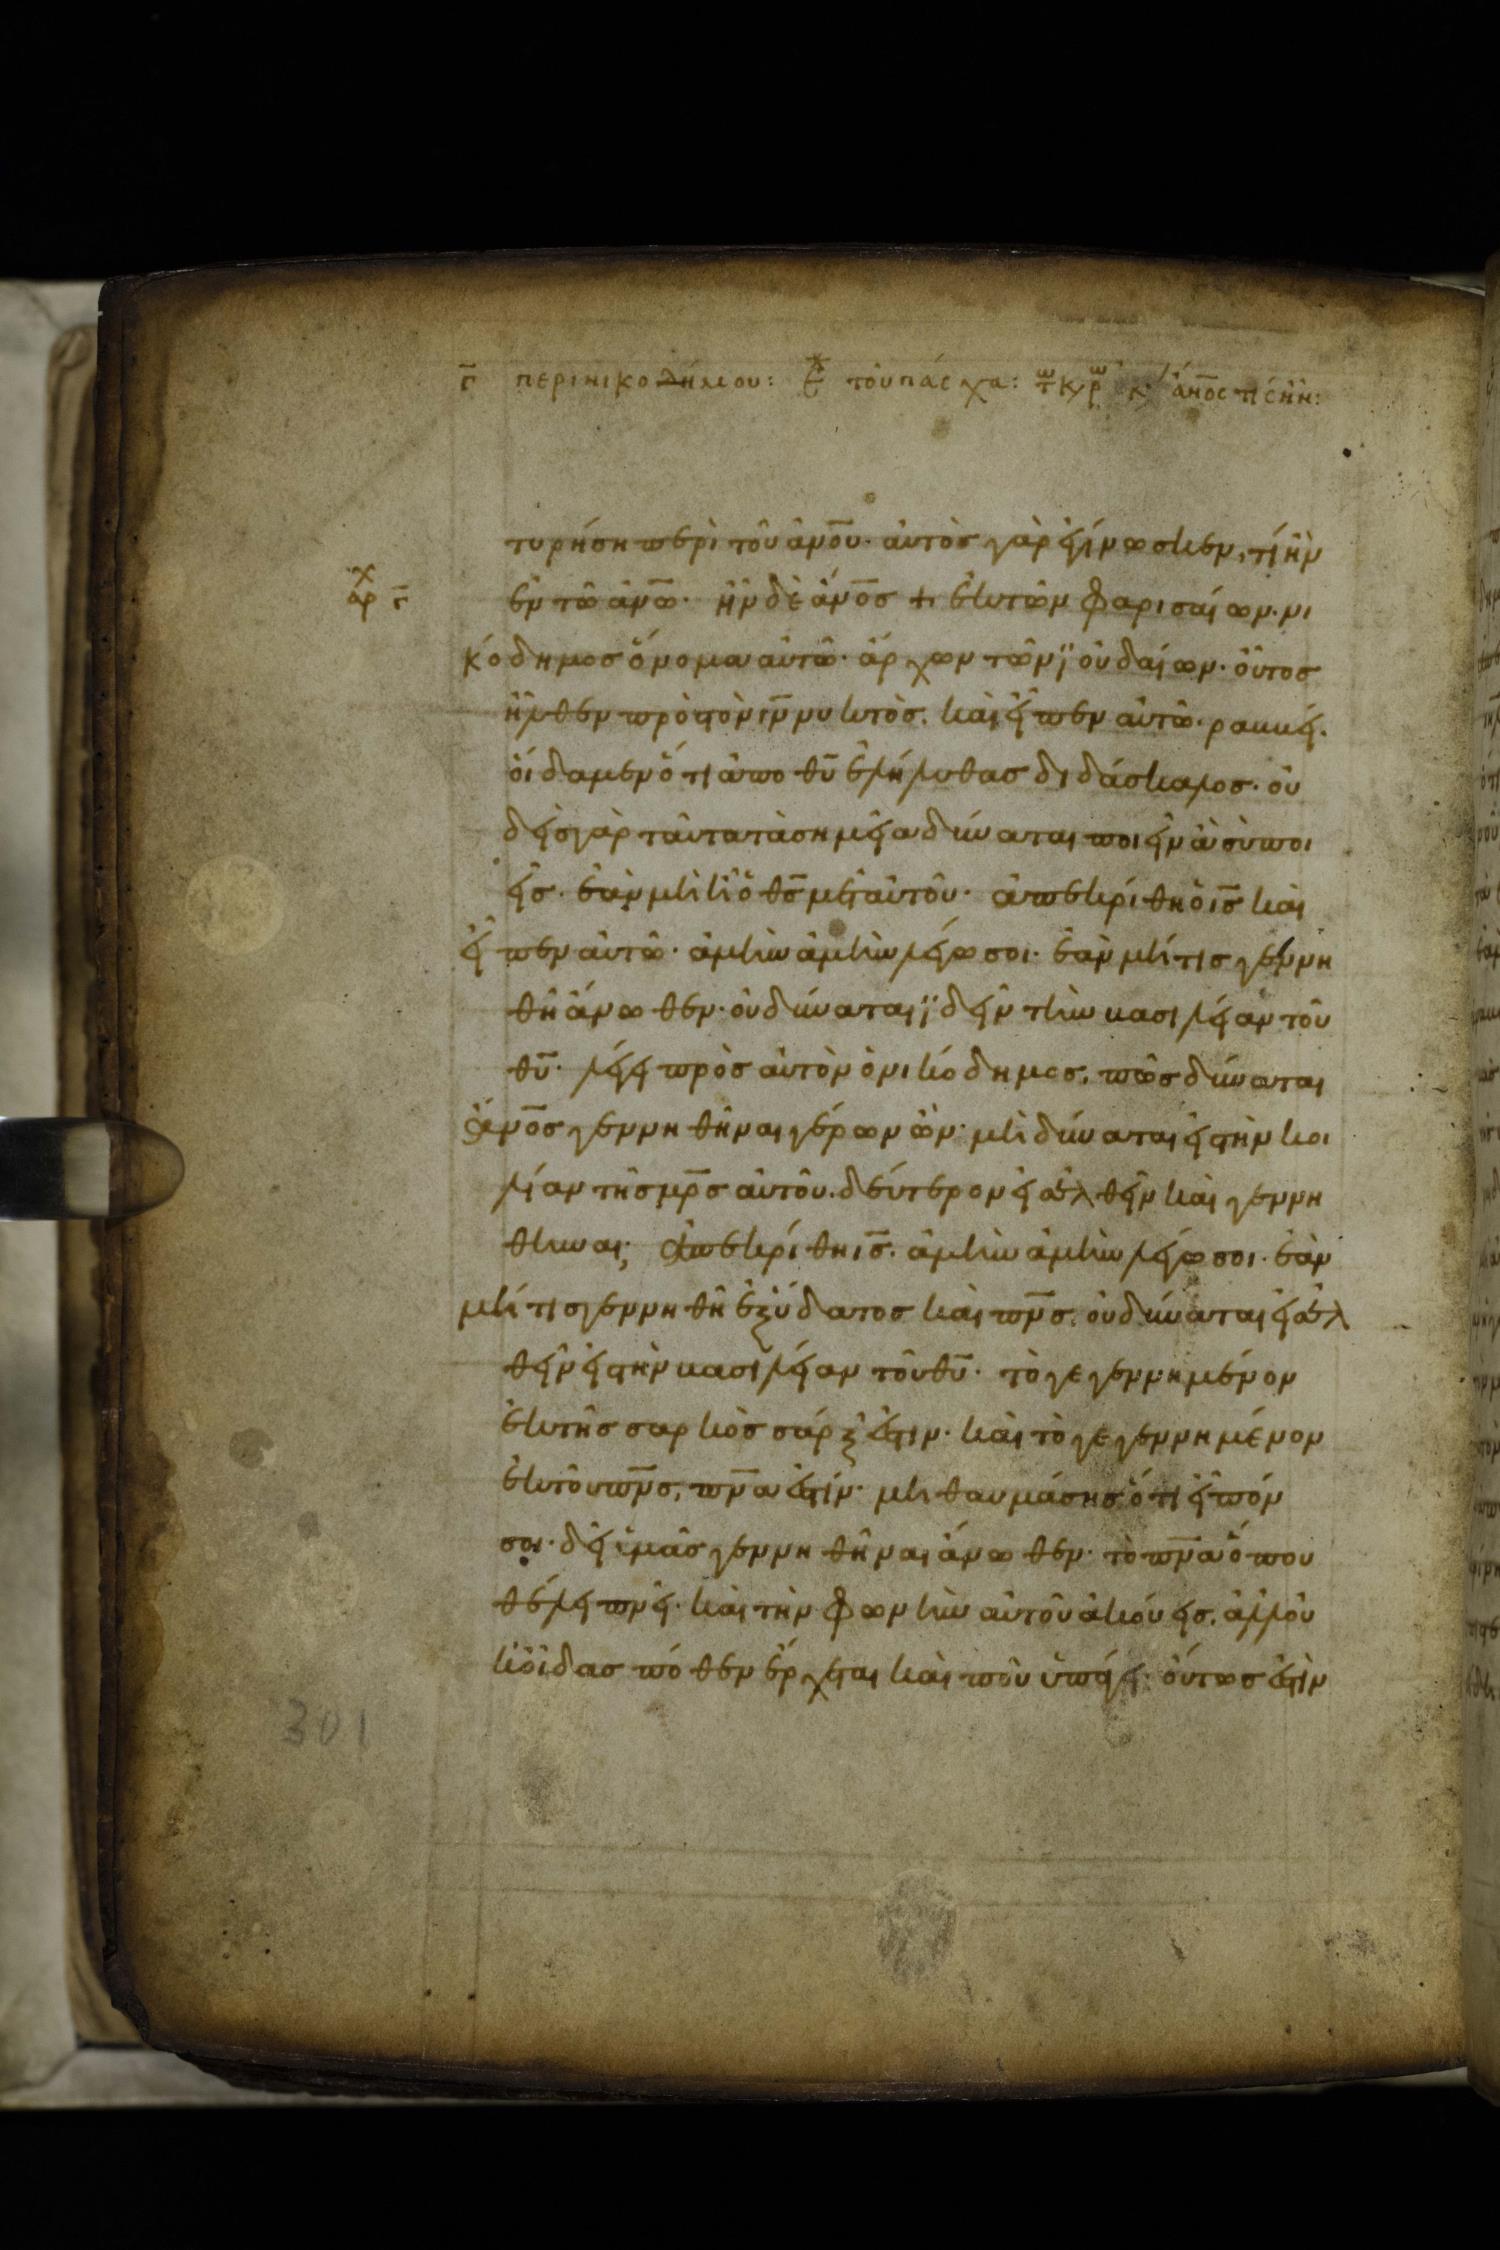 γ̅ περὶ νικοδήμου: τοῦ πάσχα: τω κρω ἀν̅ος τίς ἦν:
τυρήση περὶ τοῦ ἀν̅ου· αὐτὸς γὰρ ἐγίνωσκεν, τί ἦν
ἐν τῶ ἀν̅ω· ἦν δὲ ἄν̅ος ἐκ τῶν φαρισαίων· νι
αρχ γ̅
κόδημος ὄνομα αὐτῶ· ἄρχων τῶν ϊουδαίων· οὗτος
ἦλθεν πρὸς τὸν ι̅ν νυκτὸς. καὶ εἶπεν αὐτῶ· ραββεί·
οἴδαμεν ὅτι ἀπο θ̅υ ἐλήλυθας διδάσκαλος· οὐ
δεὶς γὰρ ταῦτα τὰ σημεῖα δύναται ποιεῖν ἃ σὺ ποι
εῖς· ἐὰν μὴ ἦ ὁ θ̅ς μετ αὐτοῦ· ἀπεκρίθη ὁ ι̅ς καὶ
εἶπεν αὐτῶ· ἀμὴν ἀμὴν λέγω σοι· ἐὰν μή τις γεννη
θῆ ἄνωθεν· οὐ δύναται ϊδεῖν τὴν βασιλείαν τοῦ
θ̅υ· λέγει πρὸς αὐτὸν ὁ νικόδημος, πῶς δύναται
ἄν̅ος γεννηθῆναι γέρων ὢν· μὴ δύναται εἰς τὴν κοι
λίαν τῆς μ̅ρς αὐτοῦ. δεύτερον εἰσελθεῖν καὶ γεννη
θῆναι; ἀπεκρίθη ι̅ς. ἀμὴν ἀμὴν λέγω σοι· ἐὰν
μή τις γεννηθῆ ἐξ ὕδατος καὶ π̅νς, οὐ δύναται εἰσελ
θεῖν εἰς τὴν βασιλείαν τοῦ θ̅υ· τὸ γεγεννημένον
ἐκ τῆς σαρκὸς σάρξ ἐστιν· καὶ τὸ γεγεννημένον
ἐκ τοῦ π̅νς, π̅να ἐστίν· μὴ θαυμάσης ὅτι εἶπόν
σοι· δεῖ ὑμᾶς γεννηθῆναι ἄνωθεν· τὸ π̅να ὅπου
θέλει πνεῖ· καὶ τὴν φωνὴν αὐτοῦ ἀκούεις, ἀλλ οὐ
κ οἶδας πόθεν ἔρχεται καὶ ποῦ ὑπάγει· οὕτως ἐστὶν
301